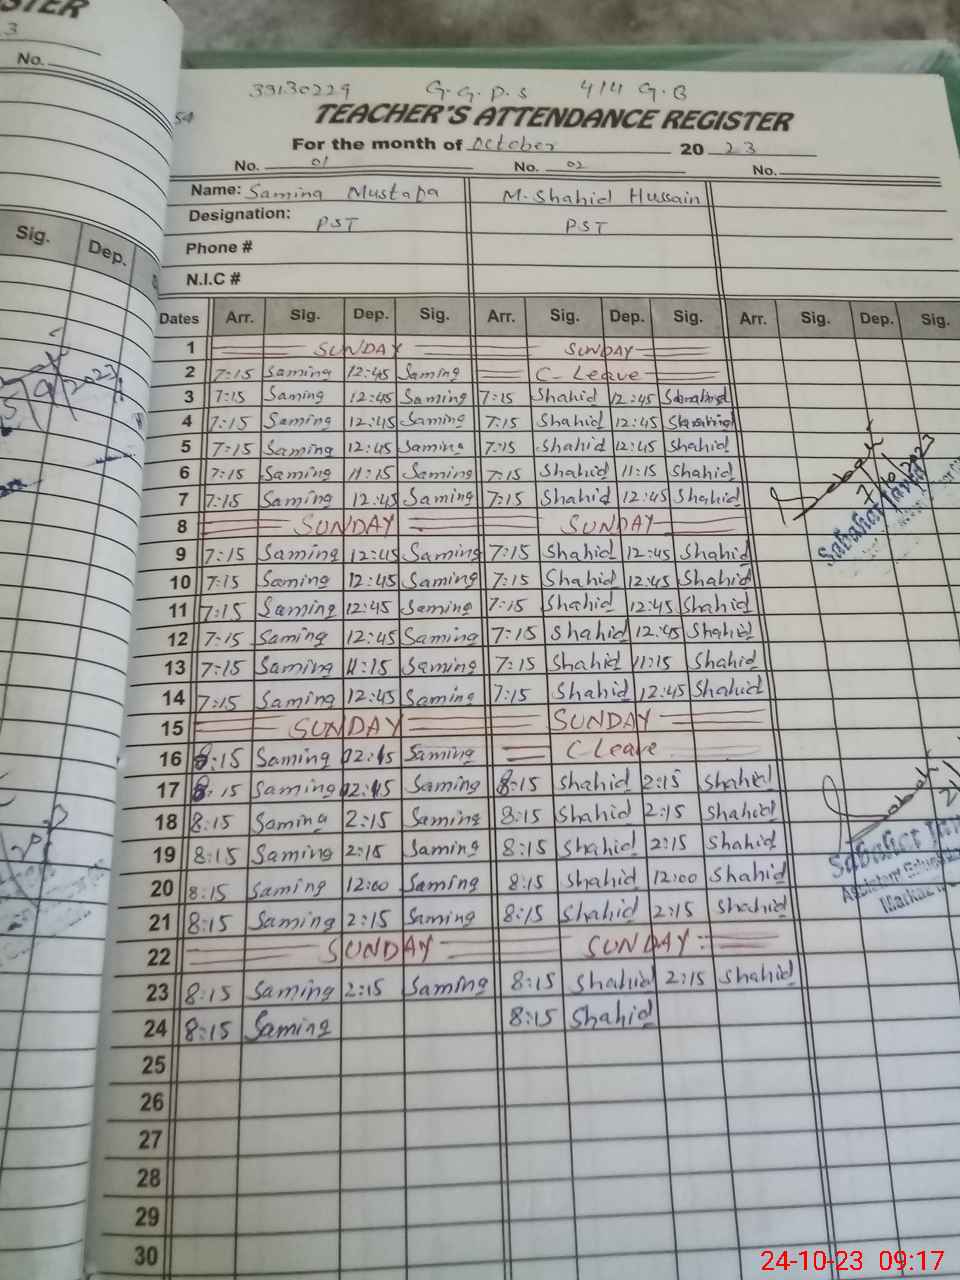 STER
3
No.
33130229 G.G.P.S 4/4 G.B
54
TEACHER'S ATTENDANCE REGISTER
For the month of October 20 23
No. 01 No. 02 No.
Name: Samina Mustafa M. Shahid Hussain
Designation: PST PST
Phone #
N.I.C #
Sig. Dep.
Dates Arr. Sig. Dep. Sig. Arr. Sig. Dep. Sig. Arr. Sig. Dep. Sig.
1 SUNDAY SUNDAY
2 7:15 Samina 12:45 Samina C-Leave
3 7:15 Samina 12:45 Samina 7:15 Shahid 12:45 Shahid
4 7:15 Samina 12:45 Samina 7:15 Shahid 12:45 Shahid
5 7:15 Samina 12:45 Samina 7:15 Shahid 12:45 Shahid
6 7:15 Samina 11:15 Samina 7:15 Shahid 11:15 Shahid
7 7:15 Samina 12:45 Samina 7:15 Shahid 12:45 Shahid
8 SUNDAY SUNDAY
9 7:15 Samina 12:45 Samina 7:15 Shahid 12:45 Shahid
10 7:15 Samina 12:45 Samina 7:15 Shahid 12:45 Shahid
11 7:15 Samina 12:45 Samina 7:15 Shahid 12:45 Shahid
12 7:15 Samina 12:45 Samina 7:15 Shahid 12:45 Shahid
13 7:15 Samina 11:15 Samina 7:15 Shahid 11:15 Shahid
14 7:15 Samina 12:45 Samina 7:15 Shahid 12:45 Shahid
15 SUNDAY SUNDAY
16 8:15 Samina Samina C-Leave
17 8:15 Samina Samina 8:15 Shahid 2:15 Shahid
18 8:15 Samina 2:15 Samina 8:15 Shahid 2:15 Shahid
19 8:15 Samina 2:15 Samina 8:15 Shahid 2:15 Shahid
20 8:15 Samina 12:00 Samina 8:15 Shahid 12:00 Shahid
21 8:15 Samina 2:15 Samina 8:15 Shahid 2:15 Shahid
22 SUNDAY SUNDAY
23 8:15 Samina 2:15 Samina 8:15 Shahid 2:15 Shahid
24 8:15 Samina 8:15 Shahid
25
26
27
28
29
30
Sabahat
7/10/2023
Sabahat
Sabahat
Sabahat
Assistant
Markaz
24-10-23 09:17